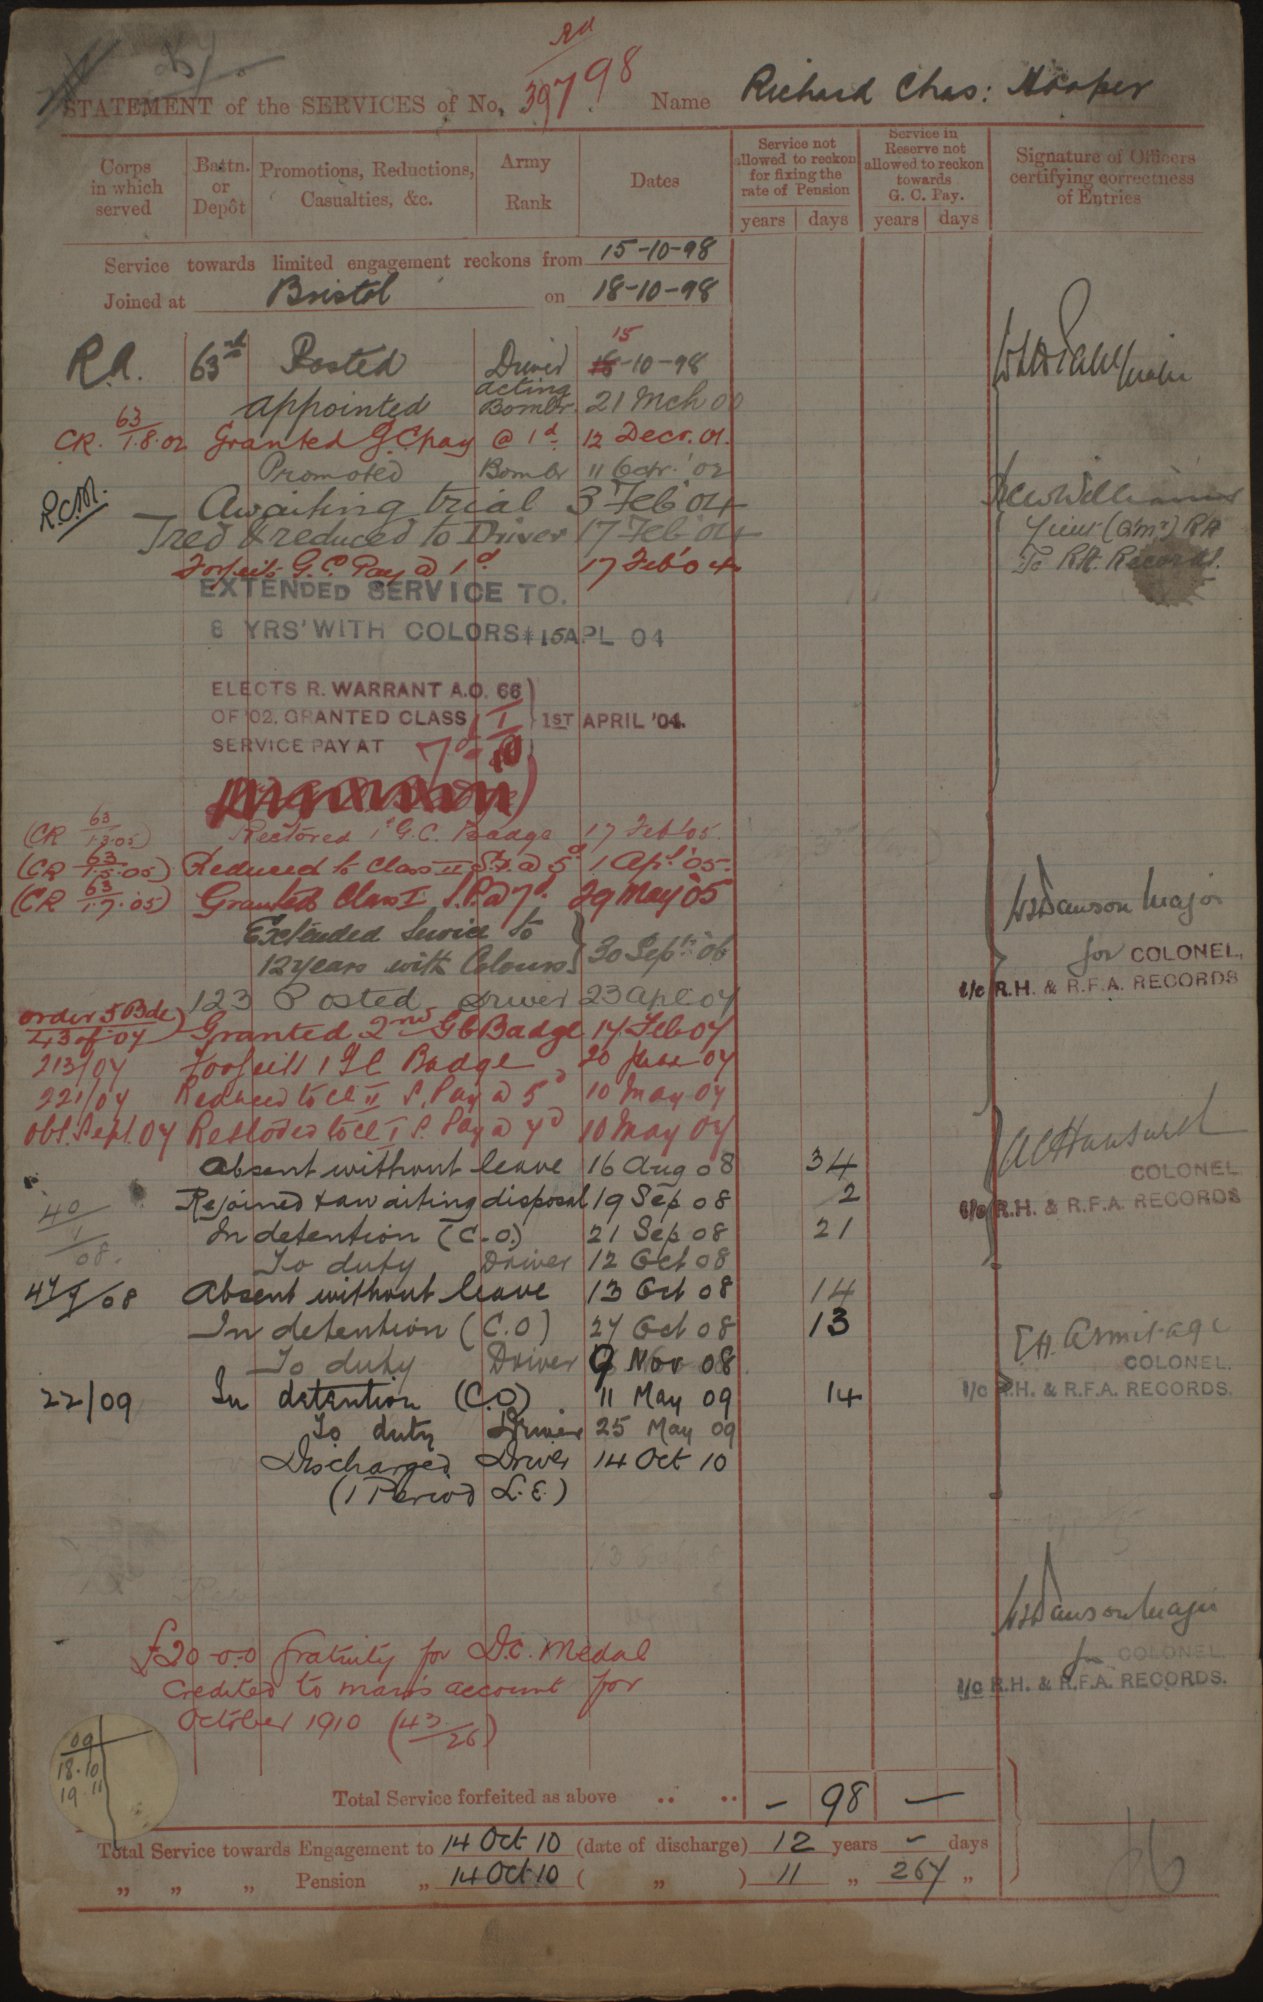 Rd
STATEMENT of the SERVICES of No. 39798 Name Richard Chas: Hooper
Corps in which served
Battn. or Depôt
Promotions, Reductions, Casualties, &c.
Army Rank
Dates
Service not allowed to reckon for fixing the rate of Pension
Service in Reserve not allowed to reckon towards G. C. Pay.
Signature of Officers certifying correctness of Entries
years days years days
Service towards limited engagement reckons from 15-10-98
Joined at Bristol on 18-10-98
15
R.A. 63rd Posted Driver 18-10-98
appointed acting Bombr. 21 Mch 00
CR. 63/1.8.02 Granted G.C. Pay @ 1d. 12 Decr. 01.
Promoted Bombr 11 '02
R.C.M. Awaiting trial 3 Feb 04
Tried & reduced to Driver 17 Feb 04
Forfeits G.C. Pay @ 1d 17 Feb 04
EXTENDED SERVICE TO.
8 YRS' WITH COLORS 15 APL 04
ELECTS R. WARRANT A.O. 66
OF '02. GRANTED CLASS I 1ST APRIL '04.
SERVICE PAY AT 7d
(CR 63/1.3.05) Restored 1st G.C. Badge 17 Feb '05.
(CR 63/1.5.05) Reduced to Class II S.P. @ 5d 1 Apl '05.
(CR 63/1.7.05) Granted Class I S.P. @ 7d. 29 May '05
W Dawson Major
for COLONEL,
i/c R.H. & R.F.A. RECORDS
Extended Service to
12 years with Colours } 30 Sepr. '06
123 Posted Driver 23 apl 07
order 5 Bde 43 of 07) Granted 2nd G C Badge 17 Feb 07
213/07 Forfeits 1 G C Badge 20 07
221/07 Reduced to Cl II S. Pay @ 5d 10 May 07
Obt. Sept. 07 Restored to Cl I S. Pay @ 7d 10 May 07
Absent without leave 16 Aug 08 34
COLONEL
i/c R.H. & R.F.A. RECORDS
40/1/08. Rejoined & awaiting disposal 19 Sep 08 2
In detention (C.O.) 21 Sep 08 21
To duty Driver 12 Oct 08
Absent without leave 13 Oct 08 14
In detention (C.O) 27 Oct 08 13
To duty Driver 9 Nov 08
E.H. Armitage
COLONEL.
i/c R.H. & R.F.A. RECORDS.
22/09 In detention (C.O) 11 May 09 14
To duty Driver 25 May 09
Discharged Driver 14 Oct 10
(1 Period L.E.)
W Dawson Major
for COLONEL.
i/c R.H. & R.F.A. RECORDS.
£20-0-0 gratuity for D.C. Medal
credited to man's account for
October 1910 (43/26)
09
18.10
19 11
Total Service forfeited as above .. .. - 98 —
Total Service towards Engagement to 14 Oct 10 (date of discharge) 12 years - days
„ „ „ Pension „ 14 Oct 10 ( „ ) 11 „ 267 „